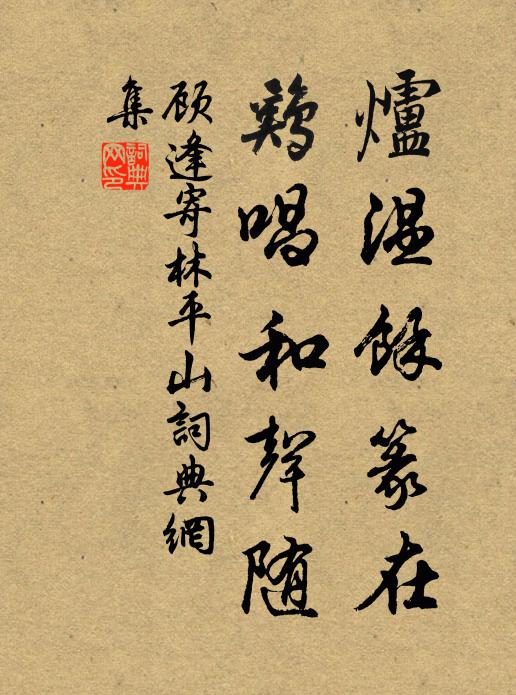 爐溫餘篆在
鷄唱和聲隨
顾逢寄林平山詞典網
集
詞典網印